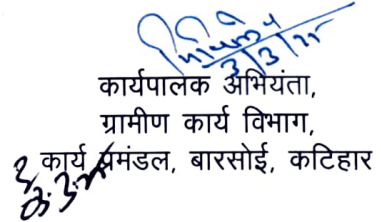 3/3/25
कार्यपालक अभियंता,
ग्रामीण कार्य विभाग,
कार्य प्रमंडल, बारसोई, कटिहार